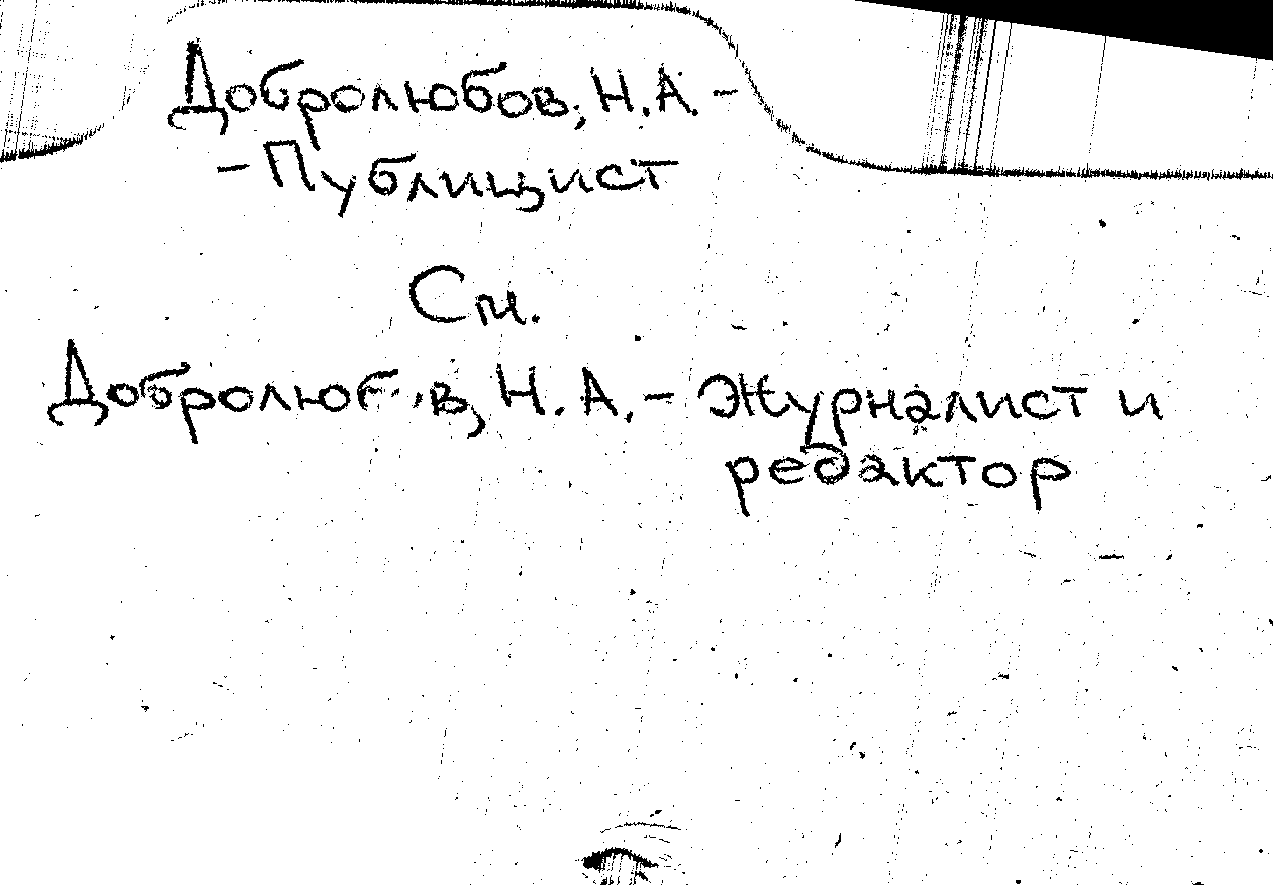 Добролюбов, Н.А. -
- Публицист
См.
Добролюбов, Н.А. - Журналист и
редактор